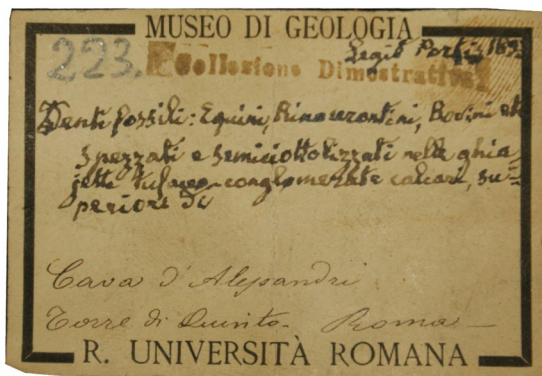 MUSEO DI GEOLOGIA
223.
Legit Portis 189
Collezione Dimostrativa
Denti fossili: Equini, Rinocerontini, Bovini etc
spezzati e semiciottolizzati nelle ghia
jette tufaceo-conglomerate calcari, su=
periori di
Cava d'Alessandri
Torre di Quinto - Roma -
R. UNIVERSITÀ ROMANA